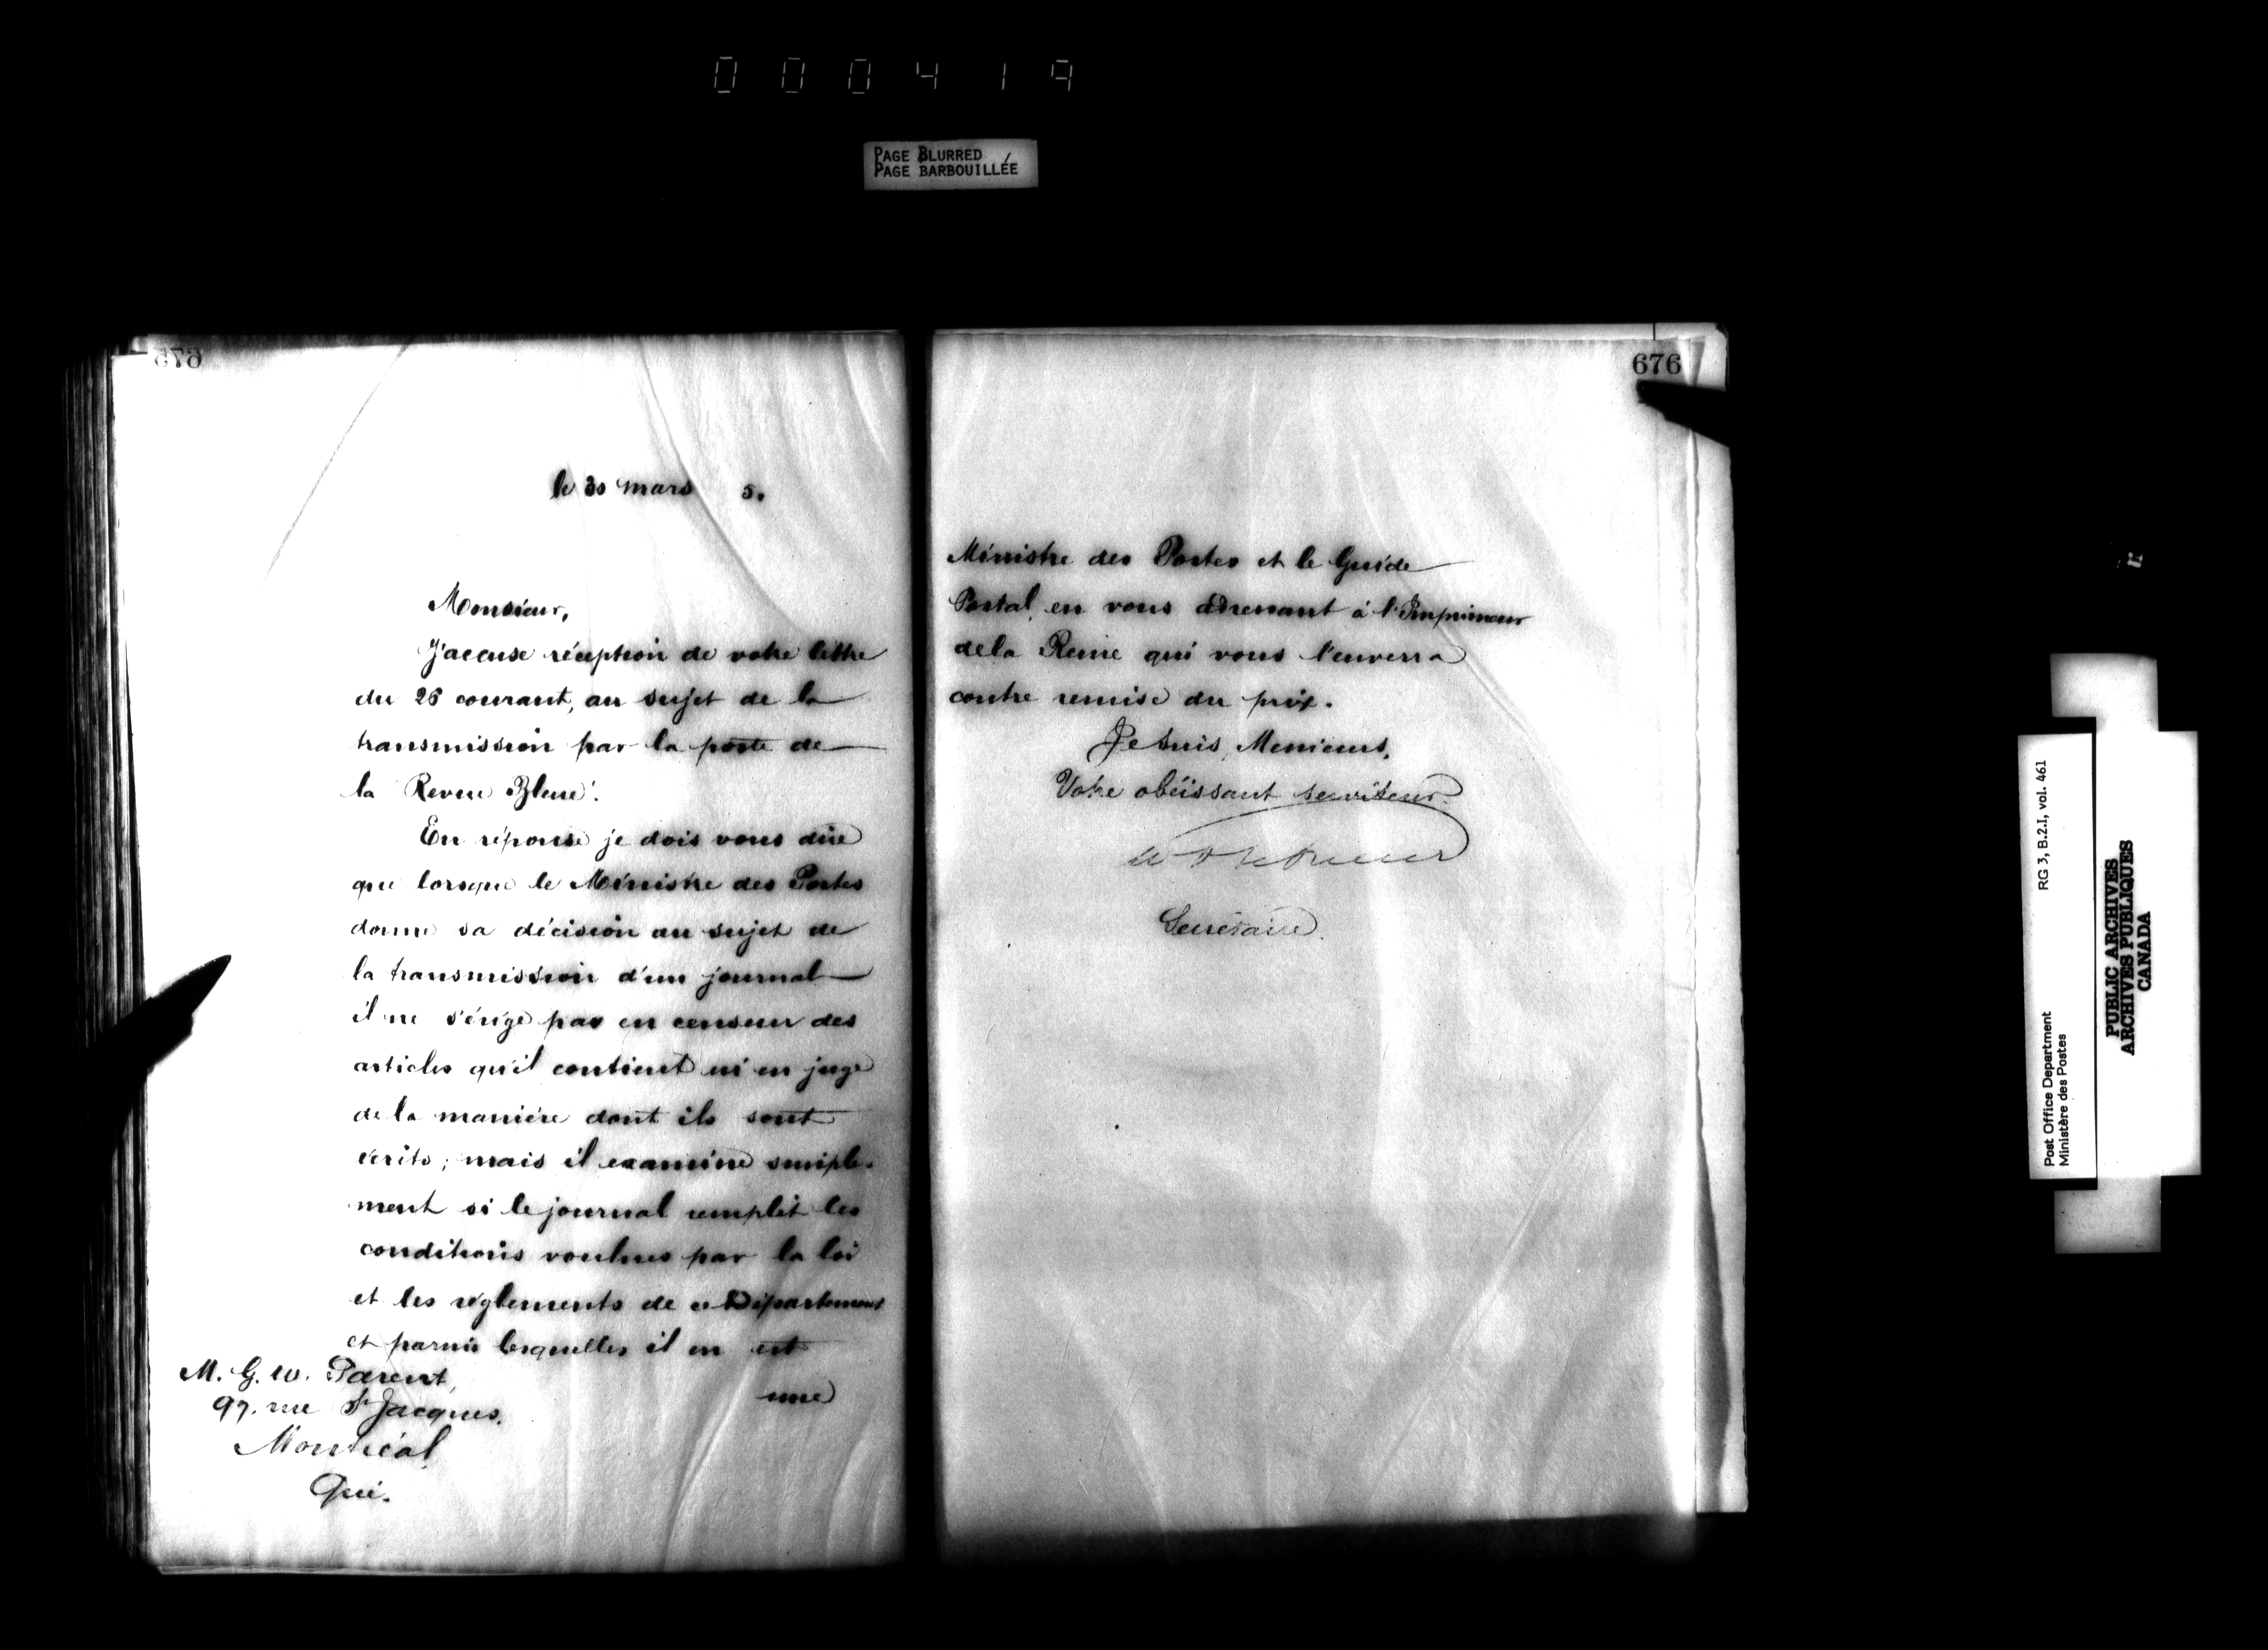 000419
PAGE BLURRED
PAGE BARBOUILLÉE
675
le 30 mars 5.
Monsieur,
J'accuse réception de votre lettre
du 26 courant, au sujet de la
transmission par la poste de
la Revue Bleue.
En réponse je dois vous dire
que lorsque le Ministre des Postes
donne sa décision au sujet de
la transmission d'un journal
il ne s'érige pas en censeur des
articles qu'il contient ni en juge
de la manière dont ils sont
écrits; mais il examine simple-
ment si le journal remplit les
conditions voulues par la loi
et les règlements de ce Département
et parmi lesquelles il en est
une
M. G. W. Parent,
97. rue St Jacques.
Montréal
Qué.
676
Ministre des Postes et le Guide
Postal, en vous adressant à l'Imprimeur
de la Reine qui vous l'enverra
contre remise du prix.
Je suis, Messieurs,
Votre obéissant serviteur.
Secrétaire.
RG 3, B.2.I, vol. 461
Post Office Department
Ministère des Postes
PUBLIC ARCHIVES
ARCHIVES PUBLIQUES
CANADA